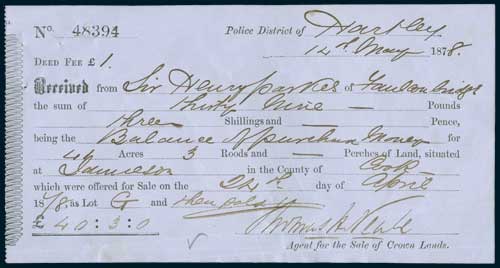 No. 48394 Police District of Hartley
14th May 1878.
DEED FEE £1.
Received from Sir Henry Parkes of Faulconbridge
the sum of Thirty Nine — Pounds
Three Shillings and — Pence,
being the Balance of purchase Money for
Acres 3 Roods and — Perches of Land, situated
at Jamieson in the County of Cook
which were offered for Sale on the 24th day of April
1878 as Lot G and then sold
£ 40:3:0
Agent for the Sale of Crown Lands.